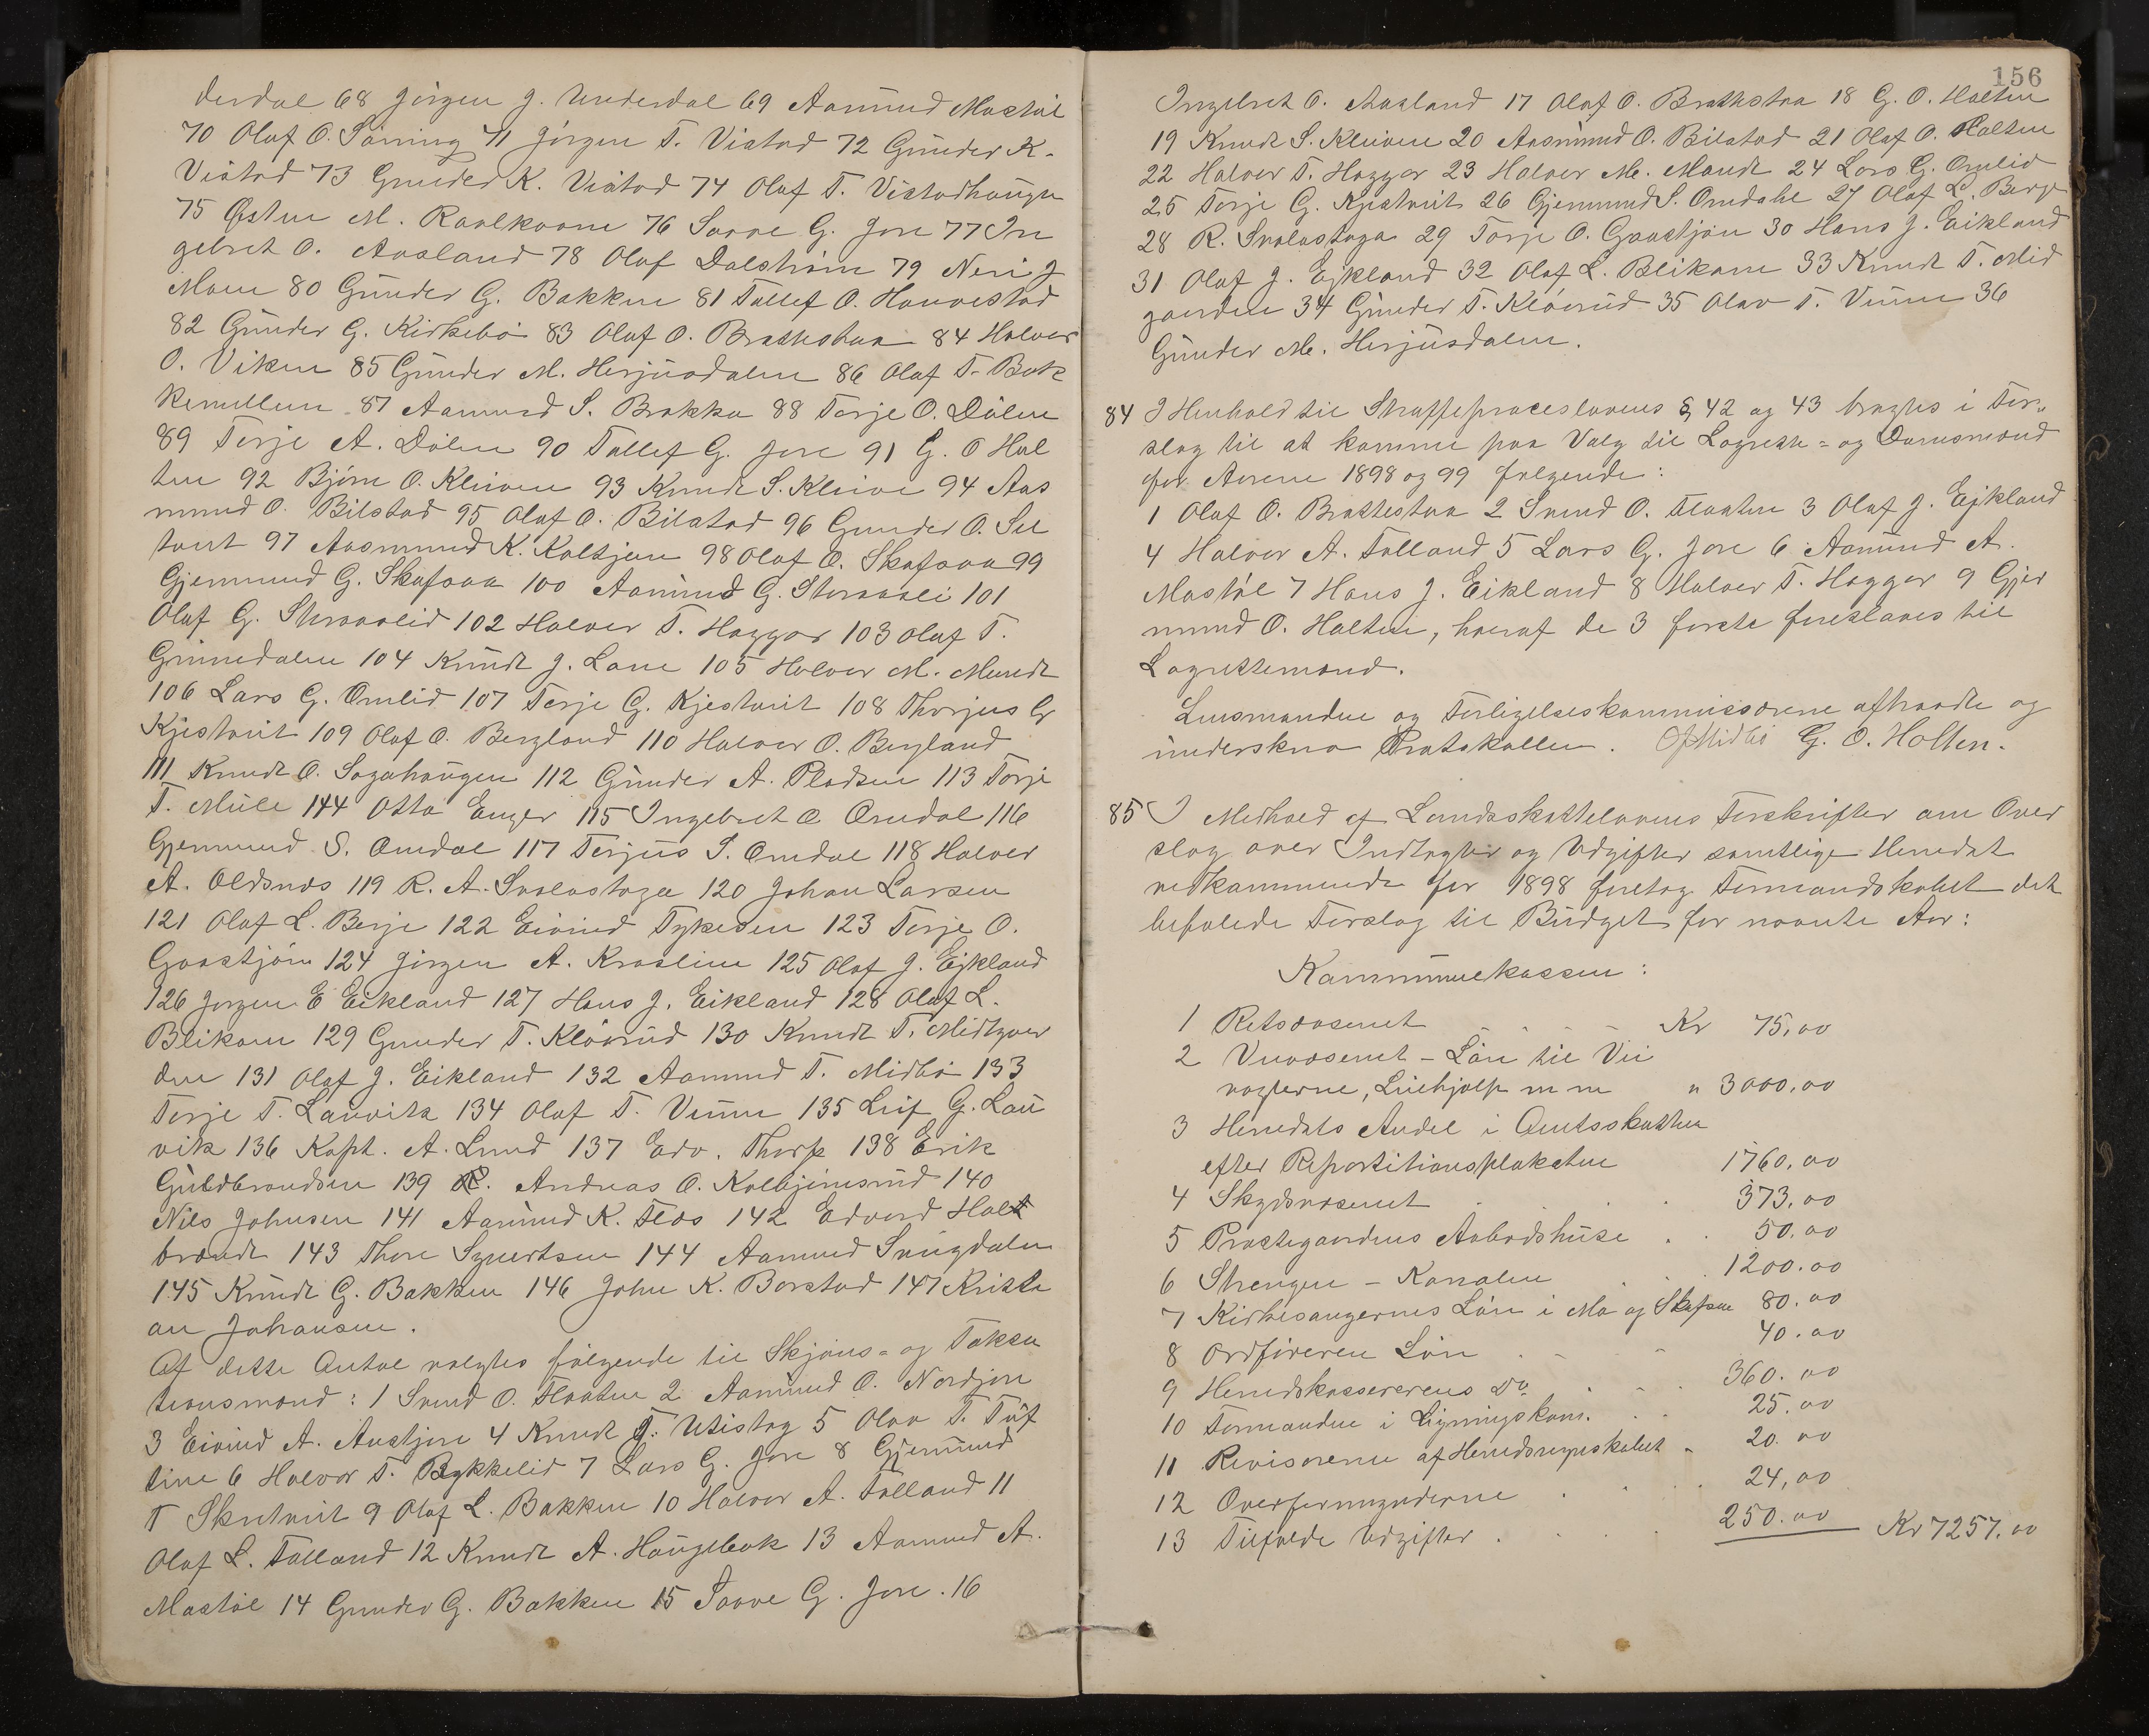 derdal 68 Jörgen J. Underdal 69 Aamund Mostöl
70 Olaf O. Söning 71 Jörgen T. Vistad 72 Gunder K.
Vistad 73 Gunder K. Vistad 74 Olaf T. Vistadhaugen
75 Östen M. Ravlkaane 76 Saave G. Jore 77 In
gebret O. Aasland 78 Olaf Dalström 79 Neri J
Moen 80 Gunder G. Bakken 81 Tallef O. Haavestad
82 Gunder G. Kirkebö 83 Olaf O. Brattestaa 84 Halvor
O. Viken 85 Gunder M. Herjusdalen 86 Olaf T. Bak
kemellem 87 Aamund S. Brokka 88 Terje O. Dölen
89 Terje A. Dölen 90 Tallef G. Jore 91 G. O Hol
ten 92 Björn O. Kleiven 93 Knudt S. Kleive 94 Aas
mund O. Bilstad 95 Olaf O. Bilstad 96 Gunder O. Sel
tveit 97 Aasmund K. Koltjen 98 Olaf O. Skafsaa 99
Gjermund G. Skafsaa 100 Aamund G. Straaali 101
Olaf G. Straaolid 102 Halvor T. Heggar 103 Olaf T.
Grimedalen 104 Knudt J. Lane 105 Halvor M. Mandt
106 Lars G. Omlid 107 Terje G. Kjestveit 108 Thorjus G
Kjestveit 109 Olaf O. Bergland 110 Halvor O. Bergland
111 Knudt O. Sagahaugen 112 Gunder A. Pladsen 113 Terje
T. Mule 114 Otto Enger 115 Ingebret O Omdal 116
Gjermund S. Omdal 117 Terjus S. Omdal 118 Halvor
A. Oldsnes 119 R. A. Svalastoga 120 Johan Larsen
121 Olaf L. Berge 122 Eivind Tykesen 123 Terje O.
Gaastjön 124 Jörgen A. Kroslien 125 Olaf J. Ejkland
126 Jörgen E Eikland 127 Hans J. Eikland 128 Olaf L.
Blikom 129 Gunder T. Klövrud 130 Knudt T. Midtgaar
den 131 Olaf J. Eikland 132 Aamund T. Midbö 133
Terje T. Lauvik 134 Olaf T. Vinne 135 Leif G. Lau
vik 136 Kapt. A. Lund 137 Edv. Thorp 138 Erik
Guldbrandsen 139 Andreas O. Kolbjörnsrud 140
Nils Johnsen 141 Aamund K. Flos 142 Edvard Holt
brandt 143 Thore Syvertsen 144 Aamund Snugdalen
145 Knudt G. Bakken 146 John K. Borstad 147 Kristi
an Johansen.
Af dette Antal valgtes fölgende til Skjöns- og Taksa
tionsmænd: 1 Svend O. Flaaten 2 Aamund O. Nordjore
3 Eivind A. Austjore 4 Knudt T. Utistog 5 Olav T. Tuf
tine 6 Halvor T. Rykkelid 7 Lars G. Jore 8 Gjermund
T Skretveit 9 Olaf L. Bakken 10 Halvor A. Tolland 11
Olaf L. Tolland 12 Knudt A. Haugebak 13 Aamund A.
Mostöl 14 Gunder G. Bakken 15 Saave G. Jore. 16
156
Ingebret O. Aasland 17 Olaf O. Brattestaa 18 G. O. Holten
19 Knudt S. Kleiven 20 Aasmund O. Bilstad 21 Olaf O. Holten
22 Halvor T. Heggar 23 Halvor M. Mandt 24 Lars G. Omlid
25 Terje G. Kjestveit 26 Gjermund S. Omdahl 27 Olaf L. Berge
28 R. Svalastoga 29 Terje O. Gaastjön 30 Hans J. Eikland
31 Olaf J. Ejkland 32 Olaf L. Blikom 33 Knudt T. Mid
gaarden 34 Gunder T. Klövrud 35 Olav T. Vinne 36
Gunder M. Herjusdalen.
84 I Henhold til Straffeproceslovens §§ 42 og 43 bragtes i For-
slag til at komme paa Valg til Lagrette- og Domsmænd
for Aarene 1898 og 99 følgende:
1 Olaf O. Brattestaa 2 Svend O. Flaaten 3 Olaf J. Ejkland
4 Halvor A. Tolland 5 Lars G. Jore 6 Aamund A.
Mostöl 7 Hans J. Eikland 8 Halvor T. Heggar 9 Gjer
mund O. Holten, hvoraf de 3 første foreslaaes til
Lagrettemænd.
Lensmanden og Forligelseskommissærene aftraadte og
underskrev Protokollen. O J Midbö G. O. Holten.
85 I Medhold af Landsskattelovens Forskrifter om Over
slag over Indtægter og Udgifter samtlige Herredet
vedkommende for 1898 foretog Formandskabet det
befalede Forslag til Budget for nævnte Aar:
Kommunekassen:
1 Retsvæsenet Kr 75,00
2 Veivæsenet - Løn til Vei
vogterne, Leiehjælp m m " 3000,00
3 Herredets Andel i Amtsskatten
efter Repartitionsplakaten 1760,00
4 Skydsvæsenet 373,00
5 Præstegaardens Aabodshuse 50.00
6 Strengen - Kanalen 1200.00
7 Kirkesangernes Løn i Mo og Skafsaa 80.00
8 Ordføreren Løn 40.00
9 Herredskassererens Do 360.00
10 Formanden i Ligningskom. 25.00
11 Revisorerne af Herredsregnskabet 20.00
12 Overformynderne 24,00
13 Tilfælde Udgifter 250.00 Kr 7257.00